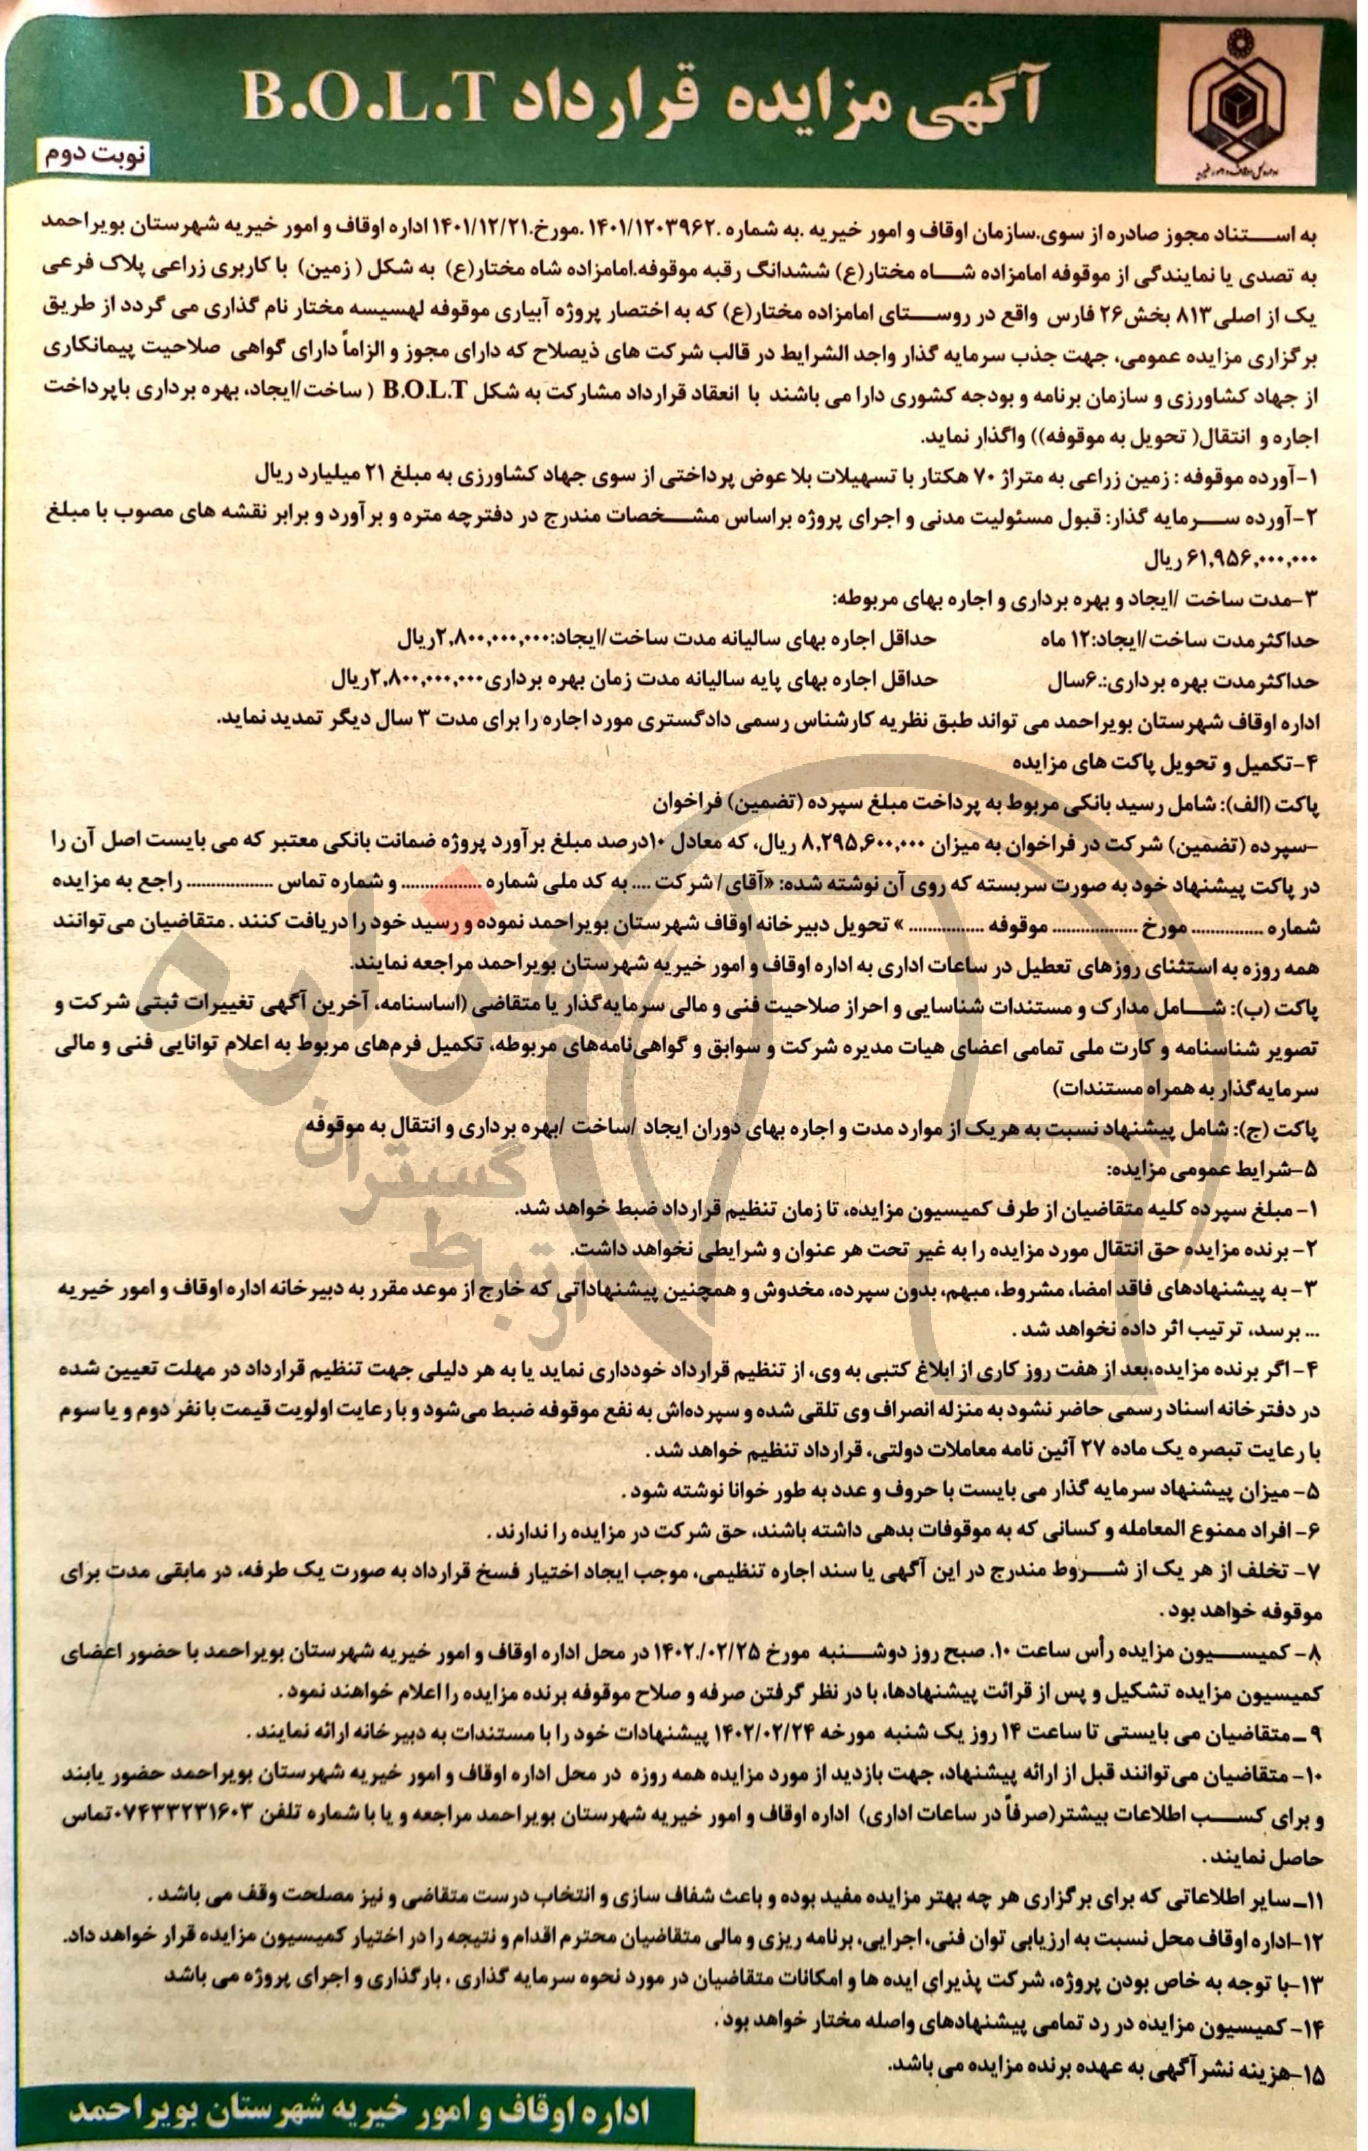 آگهی مزایده قرارداد B.O.L.T
نوبت دوم
به استناد مجوز صادره از سوی.سازمان اوقاف و امور خیریه .به شماره .۱۴۰۱/۱۲۰۳۹۶۲ .مورخ.۱۴۰۱/۱۲/۲۱ اداره اوقاف و امور خیریه شهرستان بویراحمد
به تصدی یا نمایندگی از موقوفه امامزاده شاه مختار(ع) ششدانگ رقبه موقوفه.امامزاده شاه مختار(ع) به شکل ( زمین) با کاربری زراعی پلاک فرعی
یک از اصلی۸۱۳ بخش۲۶ فارس واقع در روستای امامزاده مختار(ع) که به اختصار پروژه آبیاری موقوفه لهسیسه مختار نام گذاری می گردد از طریق
برگزاری مزایده عمومی، جهت جذب سرمایه گذار واجد الشرایط در قالب شرکت های ذیصلاح که دارای مجوز و الزاماً دارای گواهی صلاحیت پیمانکاری
از جهاد کشاورزی و سازمان برنامه و بودجه کشوری دارا می باشند با انعقاد قرارداد مشارکت به شکل B.O.L.T ( ساخت/ایجاد، بهره برداری باپرداخت
اجاره و انتقال( تحویل به موقوفه)) واگذار نماید.
۱-آورده موقوفه : زمین زراعی به متراژ ۷۰ هکتار با تسهیلات بلا عوض پرداختی از سوی جهاد کشاورزی به مبلغ ۲۱ میلیارد ریال
۲-آورده سرمایه گذار: قبول مسئولیت مدنی و اجرای پروژه براساس مشخصات مندرج در دفترچه متره و برآورد و برابر نقشه های مصوب با مبلغ
۶۱,۹۵۶,۰۰۰,۰۰۰ ریال
۳-مدت ساخت /ایجاد و بهره برداری و اجاره بهای مربوطه:
حداکثرمدت ساخت/ایجاد:۱۲ ماه حداقل اجاره بهای سالیانه مدت ساخت/ایجاد:۲,۸۰۰,۰۰۰,۰۰۰ریال
حداکثرمدت بهره برداری:.۶سال حداقل اجاره بهای پایه سالیانه مدت زمان بهره برداری۲,۸۰۰,۰۰۰,۰۰۰ریال
اداره اوقاف شهرستان بویراحمد می تواند طبق نظریه کارشناس رسمی دادگستری مورد اجاره را برای مدت ۳ سال دیگر تمدید نماید.
۴-تکمیل و تحویل پاکت های مزایده
پاکت (الف): شامل رسید بانکی مربوط به پرداخت مبلغ سپرده (تضمین) فراخوان
-سپرده (تضمین) شرکت در فراخوان به میزان ۸,۲۹۵,۶۰۰,۰۰۰ ریال، که معادل ۱۰درصد مبلغ برآورد پروژه ضمانت بانکی معتبر که می بایست اصل آن را
در پاکت پیشنهاد خود به صورت سربسته که روی آن نوشته شده: «آقای/ شرکت .... به کد ملی شماره ................ و شماره تماس ................. راجع به مزایده
شماره .............. مورخ ................. موقوفه ............... » تحویل دبیرخانه اوقاف شهرستان بویراحمد نموده و رسید خود را دریافت کنند . متقاضیان می‌توانند
همه روزه به استثنای روزهای تعطیل در ساعات اداری به اداره اوقاف و امور خیریه شهرستان بویراحمد مراجعه نمایند.
پاکت (ب): شامل مدارک و مستندات شناسایی و احراز صلاحیت فنی و مالی سرمایه‌گذار یا متقاضی (اساسنامه، آخرین آگهی تغییرات ثبتی شرکت و
تصویر شناسنامه و کارت ملی تمامی اعضای هیات مدیره شرکت و سوابق و گواهی‌نامه‌های مربوطه، تکمیل فرم‌های مربوط به اعلام توانایی فنی و مالی
سرمایه‌گذار به همراه مستندات)
پاکت (ج): شامل پیشنهاد نسبت به هریک از موارد مدت و اجاره بهای دوران ایجاد /ساخت /بهره برداری و انتقال به موقوفه
۵-شرایط عمومی مزایده:
۱- مبلغ سپرده کلیه متقاضیان از طرف کمیسیون مزایده، تا زمان تنظیم قرارداد ضبط خواهد شد.
۲- برنده مزایده حق انتقال مورد مزایده را به غیر تحت هر عنوان و شرایطی نخواهد داشت.
۳- به پیشنهادهای فاقد امضا، مشروط، مبهم، بدون سپرده، مخدوش و همچنین پیشنهاداتی که خارج از موعد مقرر به دبیرخانه اداره اوقاف و امور خیریه
... برسد، ترتیب اثر داده نخواهد شد .
۴- اگر برنده مزایده،بعد از هفت روز کاری از ابلاغ کتبی به وی، از تنظیم قرارداد خودداری نماید یا به هر دلیلی جهت تنظیم قرارداد در مهلت تعیین شده
در دفترخانه اسناد رسمی حاضر نشود به منزله انصراف وی تلقی شده و سپرده‌اش به نفع موقوفه ضبط می‌شود و با رعایت اولویت قیمت با نفر دوم و یا سوم
با رعایت تبصره یک ماده ۲۷ آئین نامه معاملات دولتی، قرارداد تنظیم خواهد شد .
۵- میزان پیشنهاد سرمایه گذار می بایست با حروف و عدد به طور خوانا نوشته شود .
۶- افراد ممنوع المعامله و کسانی که به موقوفات بدهی داشته باشند، حق شرکت در مزایده را ندارند .
۷- تخلف از هر یک از شروط مندرج در این آگهی یا سند اجاره تنظیمی، موجب ایجاد اختیار فسخ قرارداد به صورت یک طرفه، در مابقی مدت برای
موقوفه خواهد بود .
۸- کمیسیون مزایده رأس ساعت ۱۰. صبح روز دوشنبه مورخ ۱۴۰۲/۰۲/۲۵ در محل اداره اوقاف و امور خیریه شهرستان بویراحمد با حضور اعضای
کمیسیون مزایده تشکیل و پس از قرائت پیشنهادها، با در نظر گرفتن صرفه و صلاح موقوفه برنده مزایده را اعلام خواهند نمود .
۹ – متقاضیان می بایستی تا ساعت ۱۴ روز یک شنبه مورخه ۱۴۰۲/۰۲/۲۴ پیشنهادات خود را با مستندات به دبیرخانه ارائه نمایند .
۱۰- متقاضیان می‌توانند قبل از ارائه پیشنهاد، جهت بازدید از مورد مزایده همه روزه در محل اداره اوقاف و امور خیریه شهرستان بویراحمد حضور یابند
و برای کسب اطلاعات بیشتر(صرفاً در ساعات اداری) اداره اوقاف و امور خیریه شهرستان بویراحمد مراجعه و یا با شماره تلفن ۰۷۴۳۳۲۳۱۶۰۳تماس
حاصل نمایند .
۱۱– سایر اطلاعاتی که برای برگزاری هر چه بهتر مزایده مفید بوده و باعث شفاف سازی و انتخاب درست متقاضی و نیز مصلحت وقف می باشد .
۱۲-اداره اوقاف محل نسبت به ارزیابی توان فنی، اجرایی، برنامه ریزی و مالی متقاضیان محترم اقدام و نتیجه را در اختیار کمیسیون مزایده قرار خواهد داد.
۱۳-با توجه به خاص بودن پروژه، شرکت پذیرای ایده ها و امکانات متقاضیان در مورد نحوه سرمایه گذاری ، بارگذاری و اجرای پروژه می باشد
۱۴- کمیسیون مزایده در رد تمامی پیشنهادهای واصله مختار خواهد بود .
۱۵-هزینه نشر آگهی به عهده برنده مزایده می باشد.
اداره اوقاف و امور خیریه شهرستان بویراحمد
هزاره
گستران
ارتباط